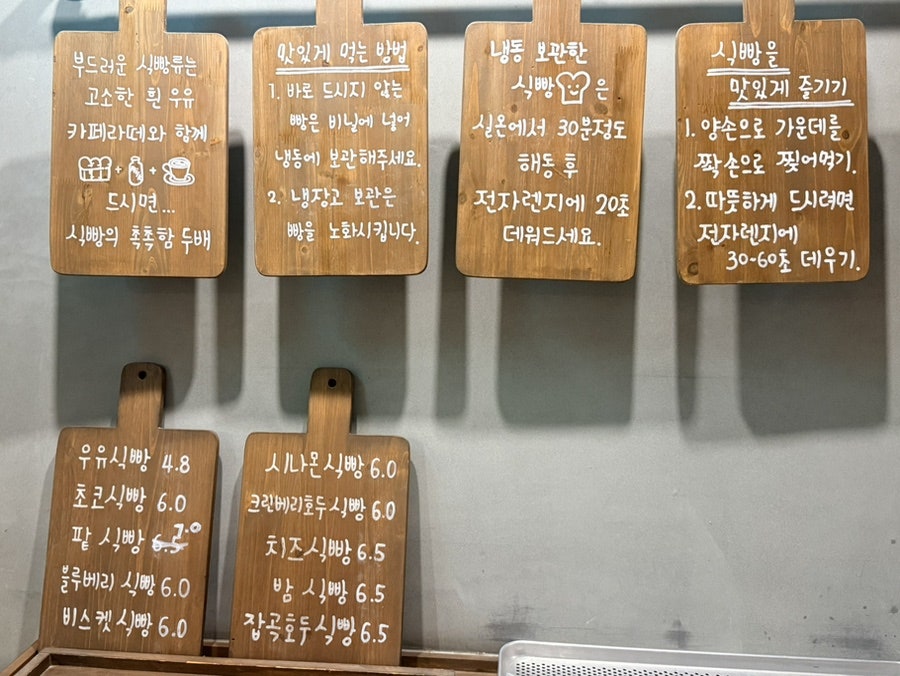 부드러운 식빵류는
고소한 흰 우유
카페라떼와 함께
+ +
드시면...
식빵의 촉촉함 두배
맛있게 먹는 방법
1. 바로 드시지 않는
빵은 비닐에 넣어
냉동에 보관해주세요.
2. 냉장고 보관은
빵을 노화시킵니다.
냉동 보관한
식빵 은
실온에서 30분정도
해동 후
전자렌지에 20초
데워드세요.
식빵을
맛있게 즐기기
1. 양손으로 가운데를
짝 손으로 찢어먹기.
2. 따뜻하게 드시려면
전자렌지에
30-60초 데우기.
우유식빵 4.8
초코식빵 6.0
팥 식빵 6.5 7.0
블루베리 식빵 6.0
비스켓 식빵 6.0
시나몬식빵 6.0
크린베리호두식빵 6.0
치즈식빵 6.5
밤 식빵 6.5
잡곡호두식빵 6.5